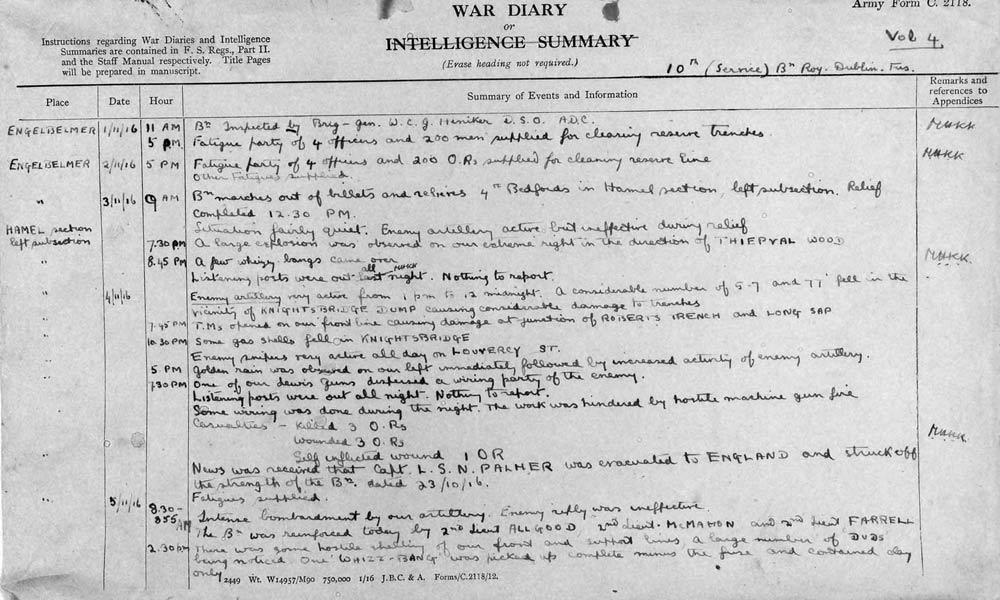 Army Form C. 2118.
WAR DIARY
or
INTELLIGENCE SUMMARY
(Erase heading not required.)
Instructions regarding War Diaries and Intelligence
Summaries are contained in F. S. Regs., Part II.
and the Staff Manual respectively. Title Pages
will be prepared in manuscript.
Vol 4
10th (Service) Bn Roy. Dublin. Fus.
Place Date Hour Summary of Events and Information Remarks and references to Appendices
ENGELBELMER 1/11/16 11 AM Bn Inspected by Brig-gen. W.C.G. Heniker D.S.O. A.D.C.
5 PM. Fatigue party of 4 officers and 200 men supplied for clearing reserve trenches.
ENGELBELMER 2/11/16 5 PM Fatigue party of 4 officers and 200 O.Rs supplied for cleaning reserve line
Other Fatigues supplied.
" 3/11/16 9 AM Bn marches out of billets and relieves 4th Bedfords in Hamel section, left subsection. Relief
completed 12.30 PM.
HAMEL section Situation fairly quiet. Enemy artillery active but ineffective during relief
left subsection 7.30 PM A large explosion was observed on our extreme right in the direction of THIEPVAL WOOD
" 8.45 PM A few whizz bangs came over
Listening posts were out all last night. Nothing to report.
" 4/11/16 Enemy artillery very active from 1 pm to 12 midnight. A considerable number of 5.7 and 77 fell in the
vicinity of KNIGHTSBRIDGE DUMP causing considerable damage to trenches
" 7.45 PM T.Ms opened on our front line causing damage at junction of ROBERTS TRENCH and LONG SAP
10.30 PM Some gas shells fell in KNIGHTSBRIDGE
Enemy snipers very active all day on LOUVERCY ST.
5 PM Golden rain was observed on our left immediately followed by increased activity of enemy artillery.
7.30 PM One of our Lewis guns dispersed a wiring party of the enemy.
Listening posts were out all night. Nothing to report.
Some wiring was done during the night. The work was hindered by hostile machine gun fire
Casualties - Killed 3 O.Rs
Wounded 3 O.Rs
Self inflicted wound 1 OR
News was received that Capt. L.S.N. PALMER was evacuated to ENGLAND and struck off
the strength of the Bn. dated 23/10/16.
Fatigues supplied.
" 5/11/16 8.30-
8.55 AM Intense bombardment by our artillery. Enemy reply was ineffective.
The Bn was reinforced today by 2nd Lieut ALLGOOD 2nd Lieut. McMAHON and 2nd Lieut FARRELL
2.30 pm There was some hostile shelling of our front and support lines a large number of DUDS
being noticed. One "WHIZZ-BANG" was picked up complete minus the fuse and contained clay
only
2449 Wt. W14957/M90 750,000 1/16 J.B.C. & A. Forms/C.2118/12.